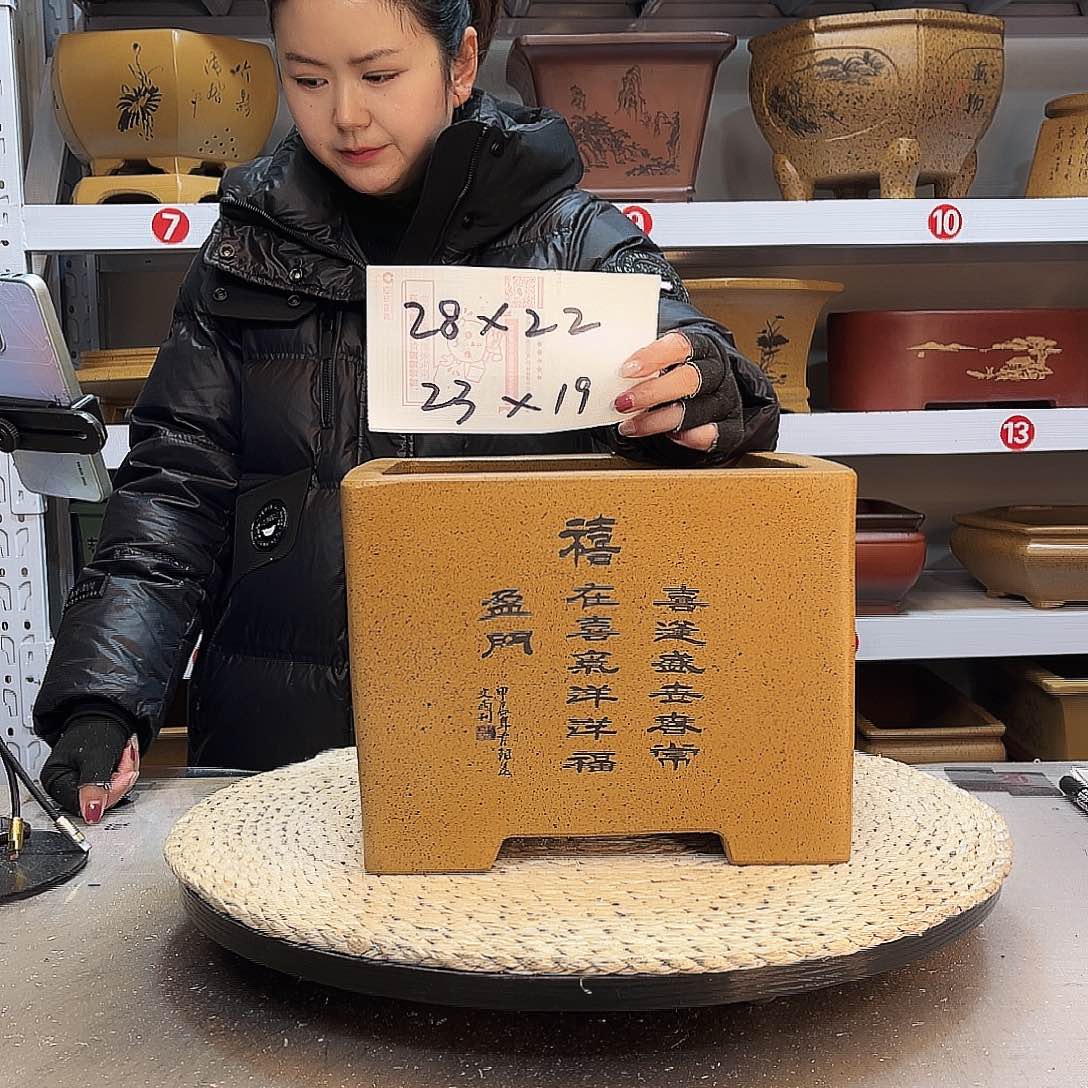 7
9
10
13
28×22
23×19
禧
喜逢盛世春常
在喜氣洋洋福
盈門
甲辰年